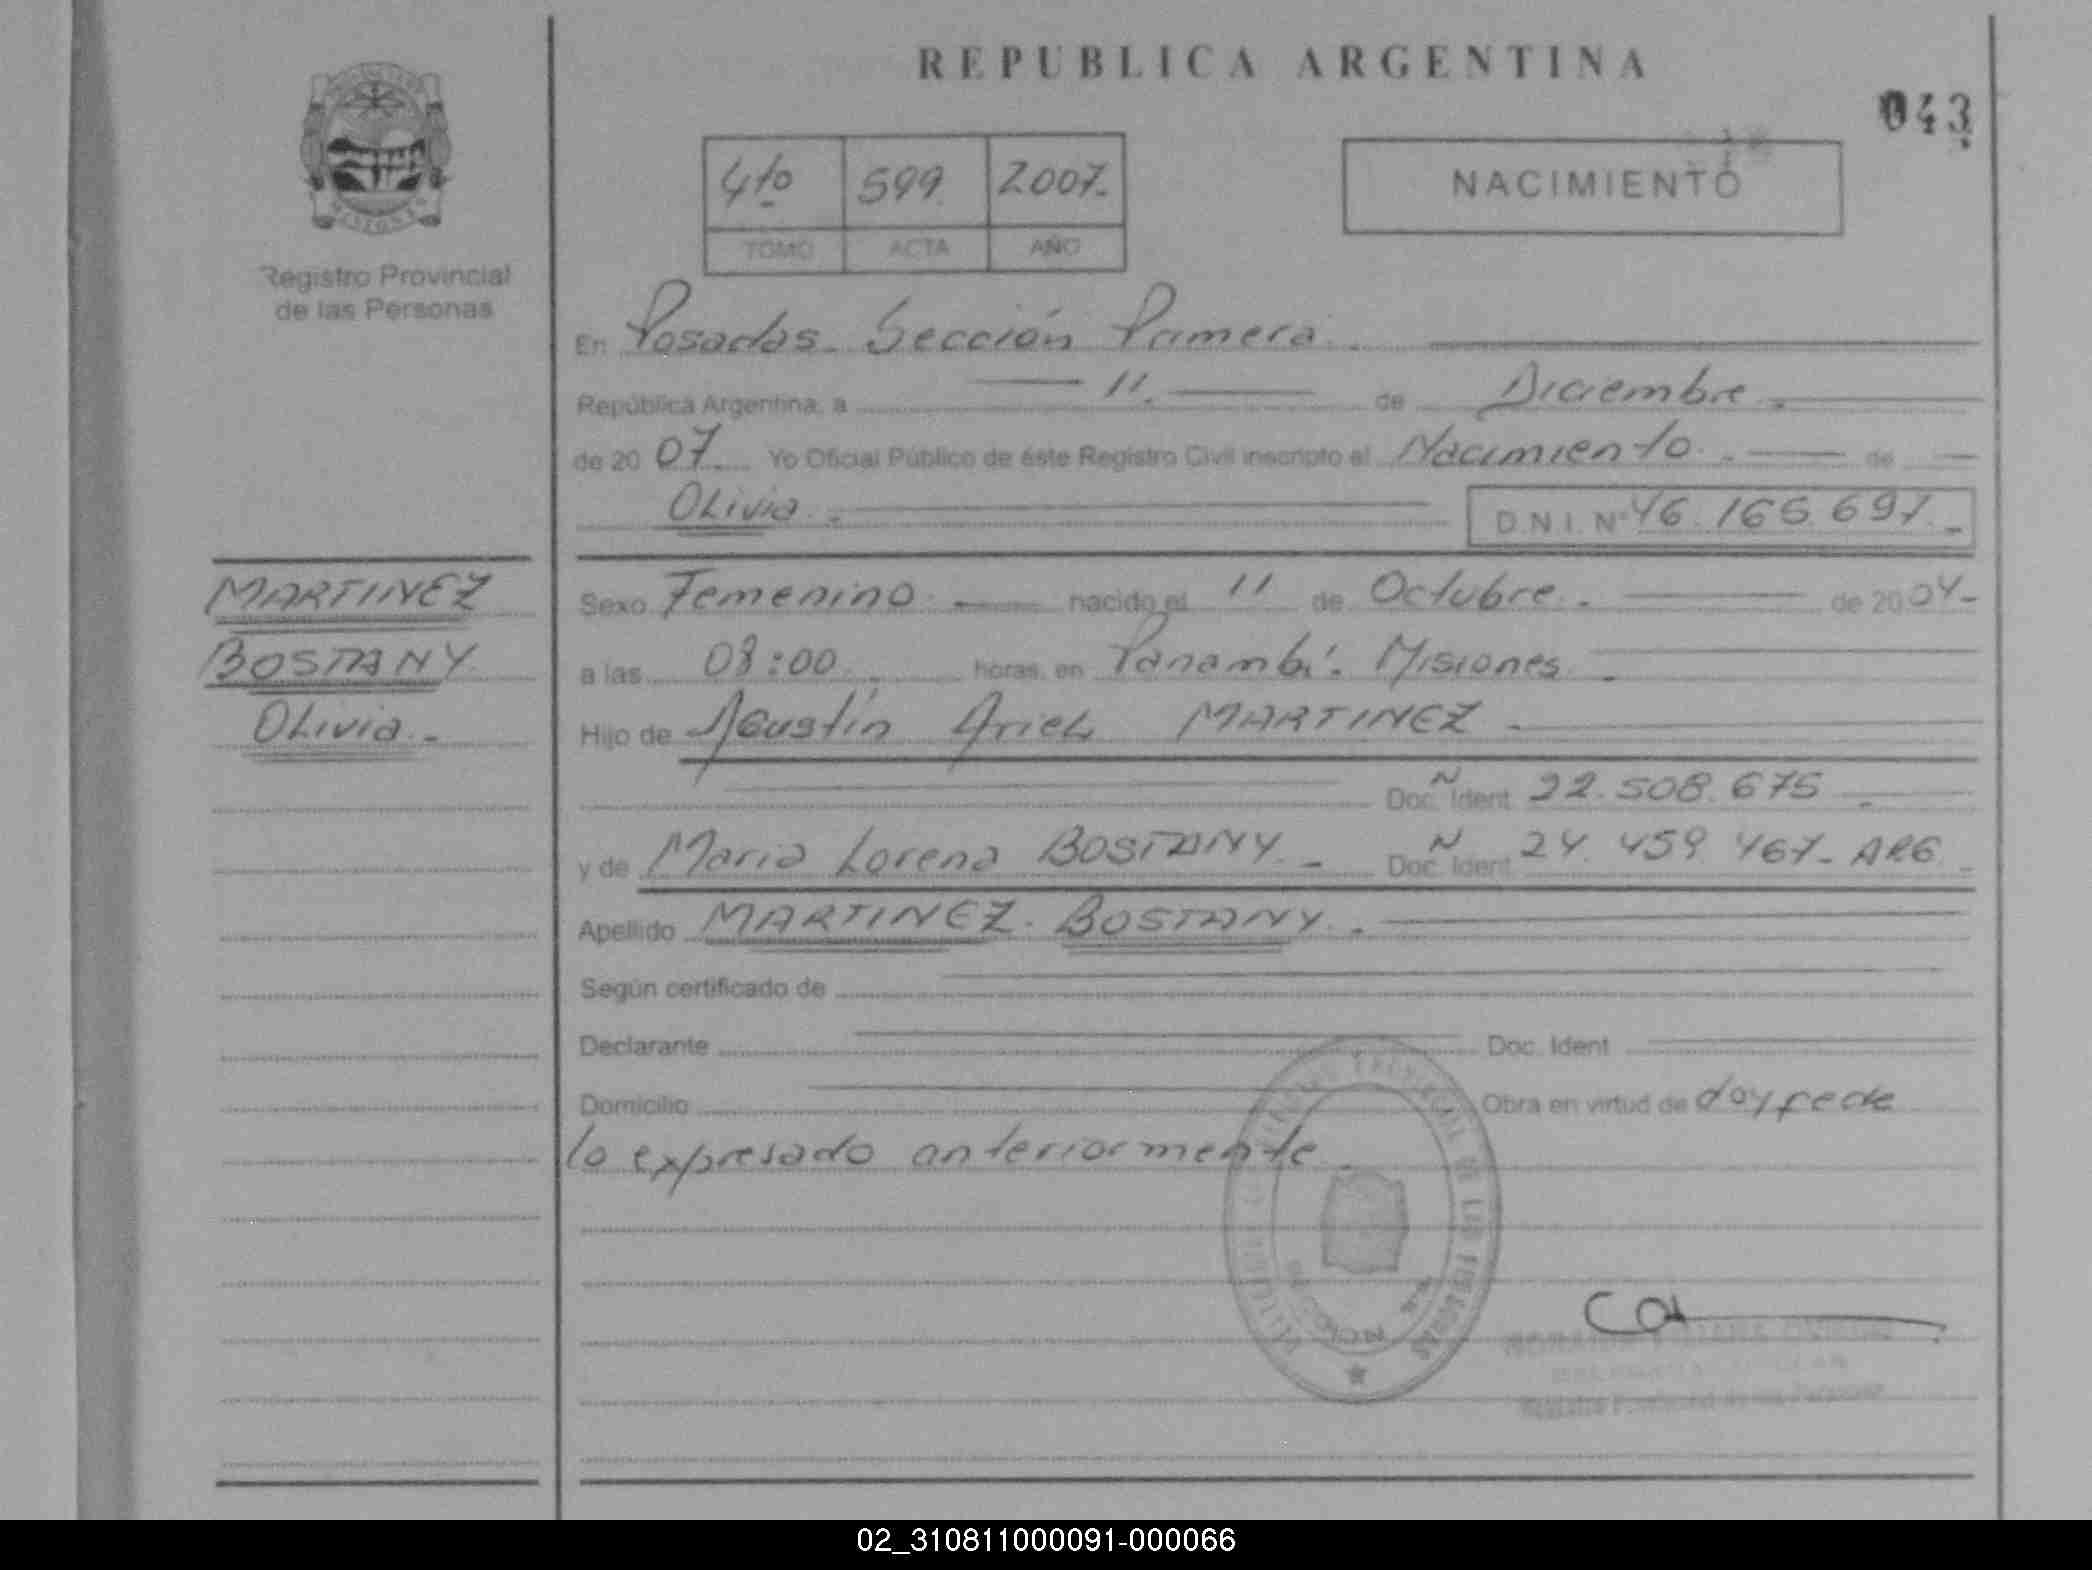 REPUBLICA ARGENTINA
043
4to 599 2007.
TOMO ACTA AÑO
NACIMIENTO
Registro Provincial
de las Personas
En Posadas. Sección Primera.
República Argentina, a 11. de Diciembre.
de 20 07. Yo Oficial Público de éste Registro Civil inscripto el Nacimiento. de
Olivia. D.N.I. Nº 46.166.697.
MARTINEZ
BOSTANY
Olivia.
Sexo Femenino. nacido el 11 de Octubre. de 2004-
a las 08:00. horas, en Panambí. Misiones.
Hijo de Agustín Ariel MARTINEZ
Doc. Ident. N 22.508.675
y de Maria Lorena BOSTANY. Doc. Ident. N 24.459.467- ARG.
Apellido MARTINEZ. BOSTANY.
Según certificado de
Declarante Doc. Ident
Domicilio Obra en virtud de doy fe de
lo expresado anteriormente
02_310811000091-000066